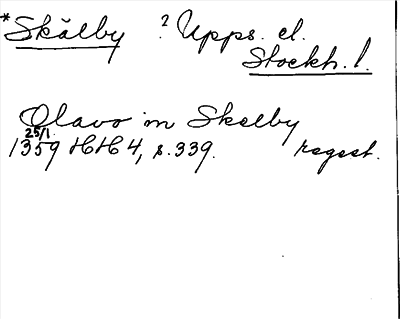 *Skälby ? Upps. el.
Stockh. l.
Olavo in Skelby
25/1
1359 HH 4, s. 339. regest.